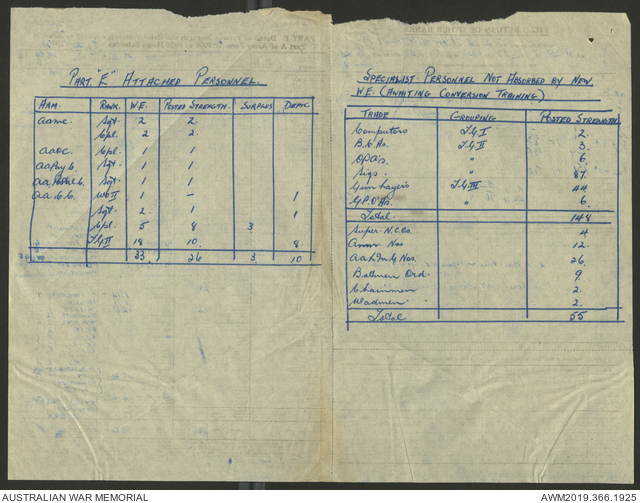 PART "E" ATTACHED PERSONNEL.
ARM. RANK. W.E. POSTED STRENGTH. SURPLUS DEFIC
AAMC. Sgt. 2 2
Cpl. 2 2.
AAOC. Cpl. 1 1
AAPay C. Sgt. 1 1
Sgt. 1 1
AACC. WOII 1 – 1
Sgt. 2 1 1
Cpl. 5 8 3
TGII 18 10. 8
33 26 3 10
SPECIALIST PERSONNEL NOT ABSORBED BY NEW.
W.E. (AWAITING CONVERSION TRAINING)
TRADE GROUPING POSTED STRENGTH
Computors TGI 2.
TGII 3.
" 6
Sigs " 87
Gun Layers TGIII 44.
G.P.O'As. " 6.
Total. 148
Super N.C.Os. 4
Amm Nos 12.
26.
Batmen Ord. 9.
Chainmen 2.
Madmen 2.
Total 55
AUSTRALIAN WAR MEMORIAL
AWM2019.366.1925